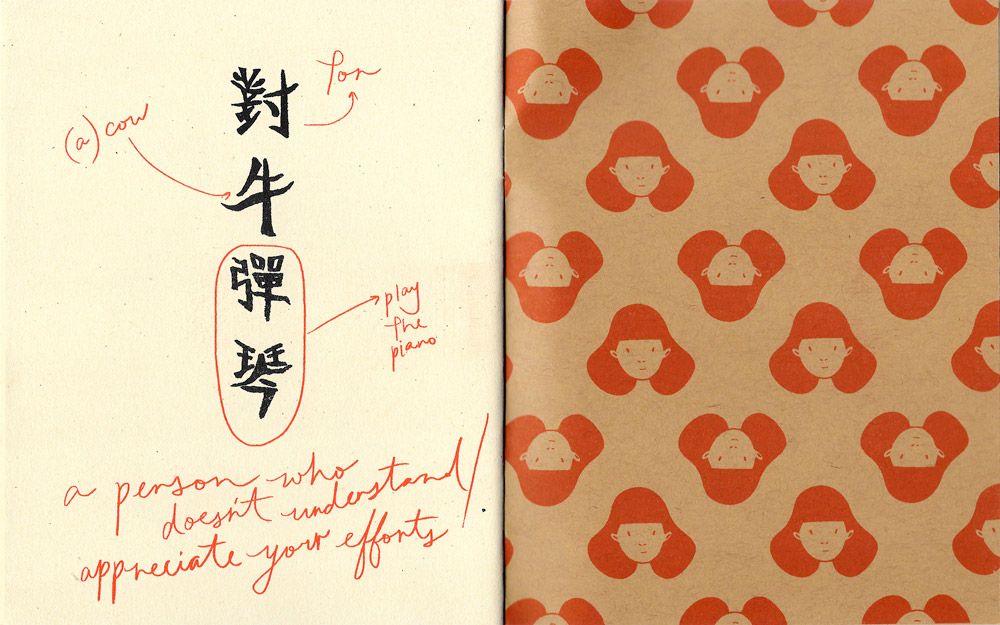 對牛彈琴
for
(a) cow
play
the
piano
a person who
doesn't understand/
appreciate your efforts